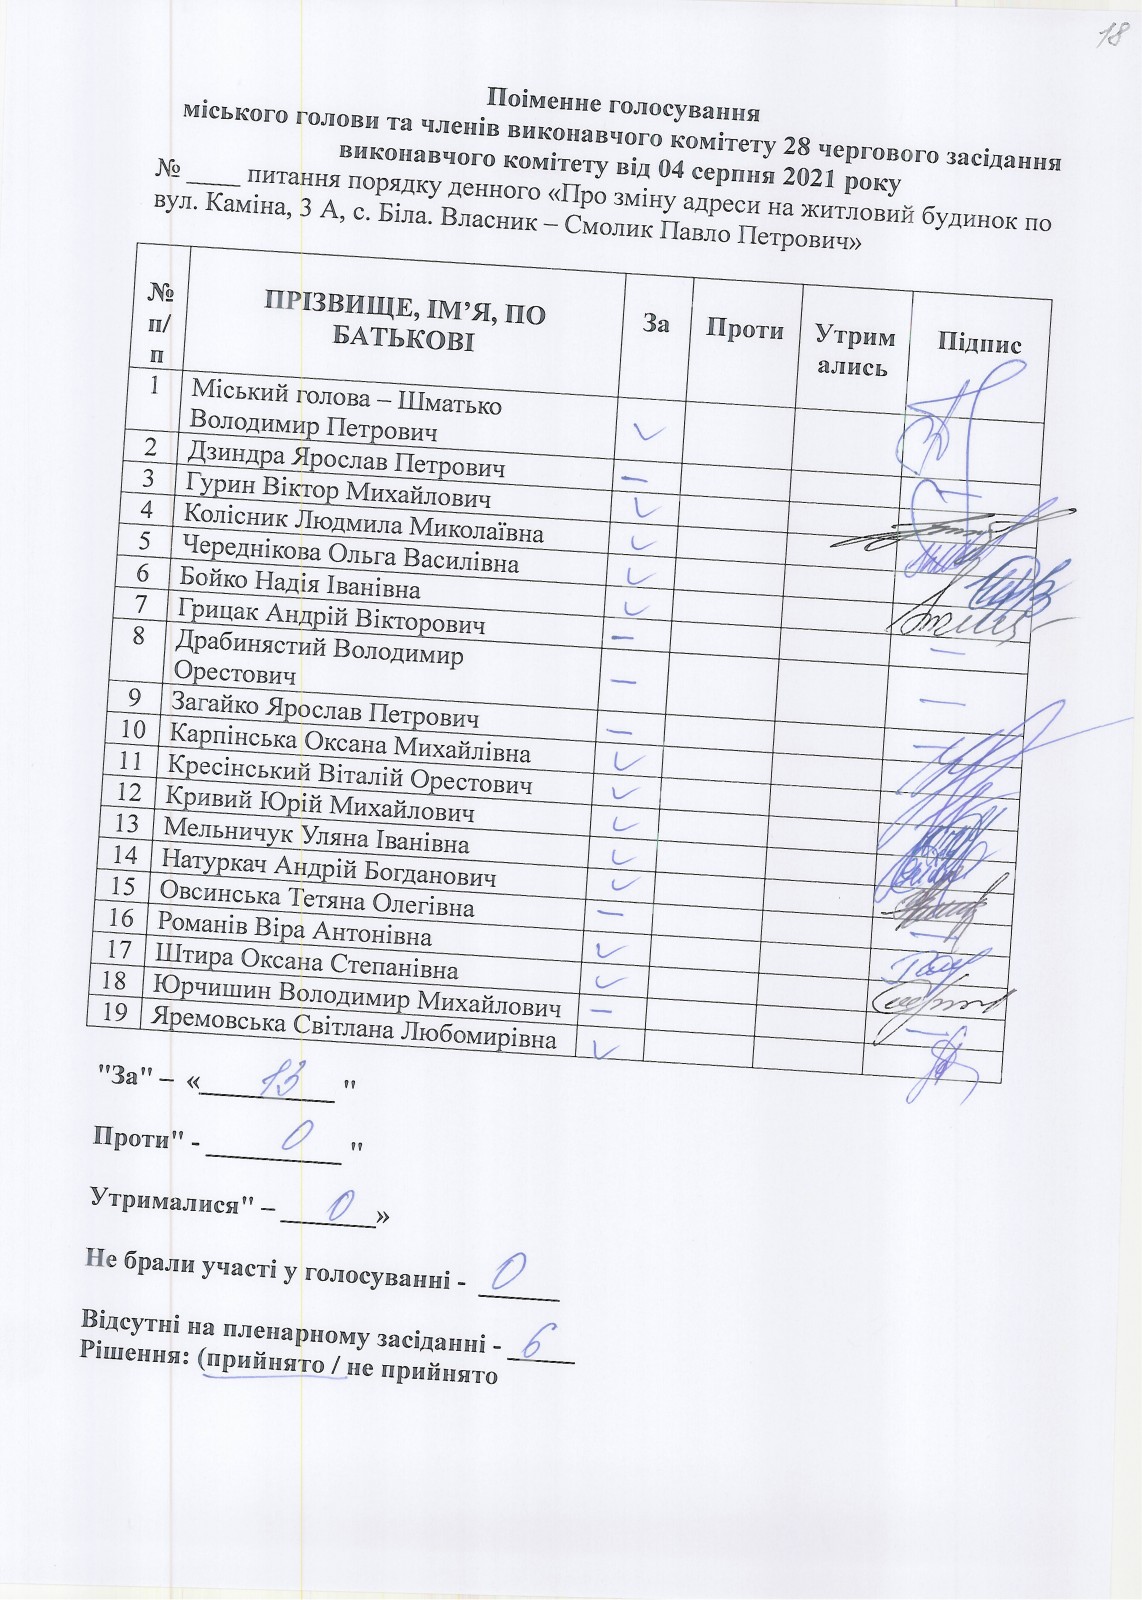 18
Поіменне голосування
міського голови та членів виконавчого комітету 28 чергового засідання
виконавчого комітету від 04 серпня 2021 року
№ ____ питання порядку денного «Про зміну адреси на житловий будинок по
вул. Каміна, 3 А, с. Біла. Власник – Смолик Павло Петрович»
№ п/п ПРІЗВИЩЕ, ІМ’Я, ПО БАТЬКОВІ За Проти Утримались Підпис
1 Міський голова – Шматько
Володимир Петрович ✓
2 Дзиндра Ярослав Петрович –
3 Гурин Віктор Михайлович ✓
4 Колісник Людмила Миколаївна ✓
5 Череднікова Ольга Василівна ✓
6 Бойко Надія Іванівна ✓
7 Грицак Андрій Вікторович – –
8 Драбинястий Володимир
Орестович – –
9 Загайко Ярослав Петрович – –
10 Карпінська Оксана Михайлівна ✓
11 Кресінський Віталій Орестович ✓
12 Кривий Юрій Михайлович ✓
13 Мельничук Уляна Іванівна ✓
14 Натуркач Андрій Богданович ✓
15 Овсинська Тетяна Олегівна – –
16 Романів Віра Антонівна ✓
17 Штира Оксана Степанівна ✓
18 Юрчишин Володимир Михайлович – –
19 Яремовська Світлана Любомирівна ✓
"За" – «13 "
Проти" - 0 "
Утрималися" – 0»
Не брали участі у голосуванні - 0
Відсутні на пленарному засіданні - 6
Рішення: (прийнято / не прийнято